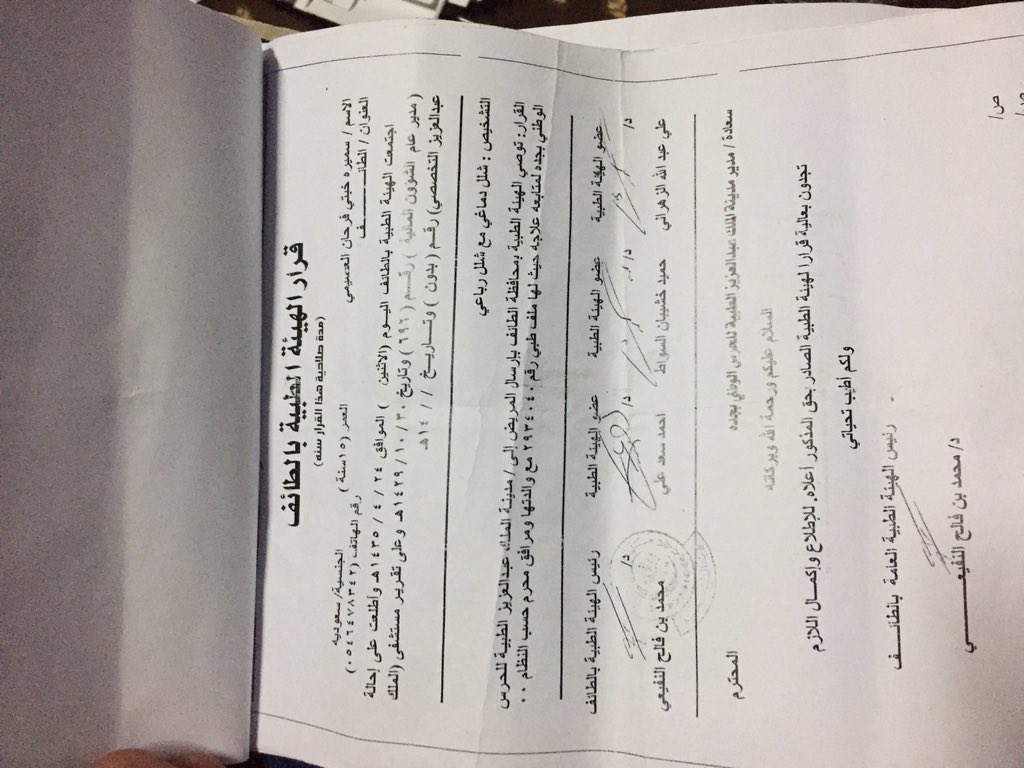 قرار الهيئة الطبية بالطائف
(مدة صلاحية هذا القرار سنه)
الاسم / سميره خبتي فرحان العتيبي العمر (١٥ سنة) الجنسية/ سعوديه
العنوان / الطائـــــف رقم الهاتف (٠٥٤٦٤٧٨٣٤٢)
اجتمعت الهيئة الطبية بالطائف اليوم (الاثنين) الموافق ٢٤ / ٤ / ١٤٣٥هـ وأطلعت على إحالة
(مدير عام الشؤون المالية) رقـــم (٦٩٦) وتاريخ ١٤٢٩/١٠/٣٠هـ وعلى تقرير مستشفى (الملك
عبدالعزيز التخصصي) رقــم (بدون) وتــاريــخ / / ١٤هـ
التشخيص : شلل دماغي مع شلل رباعي
القرار: توصي الهيئة الطبية بمحافظة الطائف بإرسال المريض إلى / مدينة الملك عبدالعزيز الطبية للحرس
الوطني بجده لمتابعه علاجه حيث لها ملف طبي رقم ٢٩٣٤٠٤٠ مع والدتها ومرافق محرم حسب النظام ..
عضو الهيئة الطبية عضو الهيئة الطبية عضو الهيئة الطبية رئيس الهيئة الطبية بالطائف
د/ د/ د/ د/
علي عبد الله الزهراني حميد خشيبان السواط احمد سعد علي محمد بن فالح النفيعي
سعادة / مدير مدينة الملك عبدالعزيز الطبية للحرس الوطني بجده المحترم
السلام عليكم ورحمة الله وبركاته
تجدون بعالية قرار الهيئة الطبية الصادر بحق المذكور أعلاه. للإطلاع وإكمــال اللازم
ولكم أطيب تحياتي
رئيس الهيئة الطبية العامة بالطائــــف
د/ محمد بن فالح النفيعـــــــي
ص/